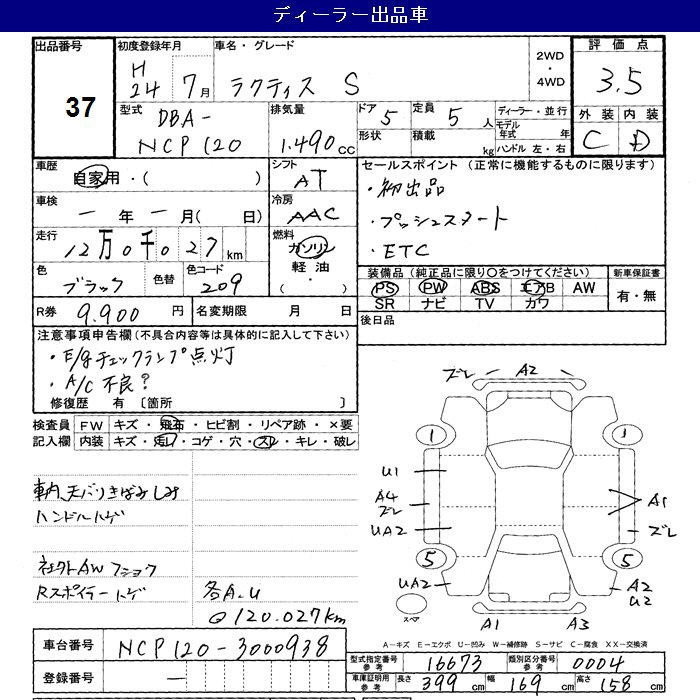 ディーラー出品車
出品番号 37
初度登録年月 H 24 7月
車名・グレード ラクティス S
2WD ・ 4WD
評価点 3.5
外装 C 内装 D
型式 DBA- NCP120
排気量 1.490 cc
ドア 5 形状
定員 5 人 積載 kg
ディーラー・並行
モデル年式 年
ハンドル 左・右
車歴 自家用・( )
シフト AT
セールスポイント (正常に機能するものに限ります)
・初出品
・プッシュスタート
・ETC
車検 一年一月( 日)
冷房 AAC
走行 12万0千027km
燃料 ガソリン 軽油 ・( )
色 ブラック 色替 色コード 209
装備品 (純正品に限り○をつけてください)
PS PW ABS エアB AW
SR ナビ TV カワ
新車保証書 有・無
R券 9.900 円 名変期限 月 日
後日品
注意事項申告欄 (不具合内容等は具体的に記入して下さい)
・E/gチェックランプ点灯
・A/C不良?
修復歴 有 〔箇所 〕
検査員記入欄
FW キズ・飛石・ヒビ割・リペア跡・×要
内装 キズ・汚レ・コゲ・穴・スレ・キレ・破レ
車内天バリきばみしみ
ハンドルハゲ
社外AWフショク
Rスポイラーハゲ
各A.U
@120.027km
ズレ A2
1 1
U1
A4
ズレ
UA2
A1
ズレ
5 5
UA2
A2
U2
スペア
A1 A3
A－キズ E－エクボ U－凹み W－補修跡 S－サビ C－腐食 XX－交換済
車台番号 NCP120-3000938
登録番号 —
型式指定番号 参考 16673 類別区分番号 参考 0004
車庫証明用 参考 長さ 399 cm 幅 169 cm 高さ 158 cm